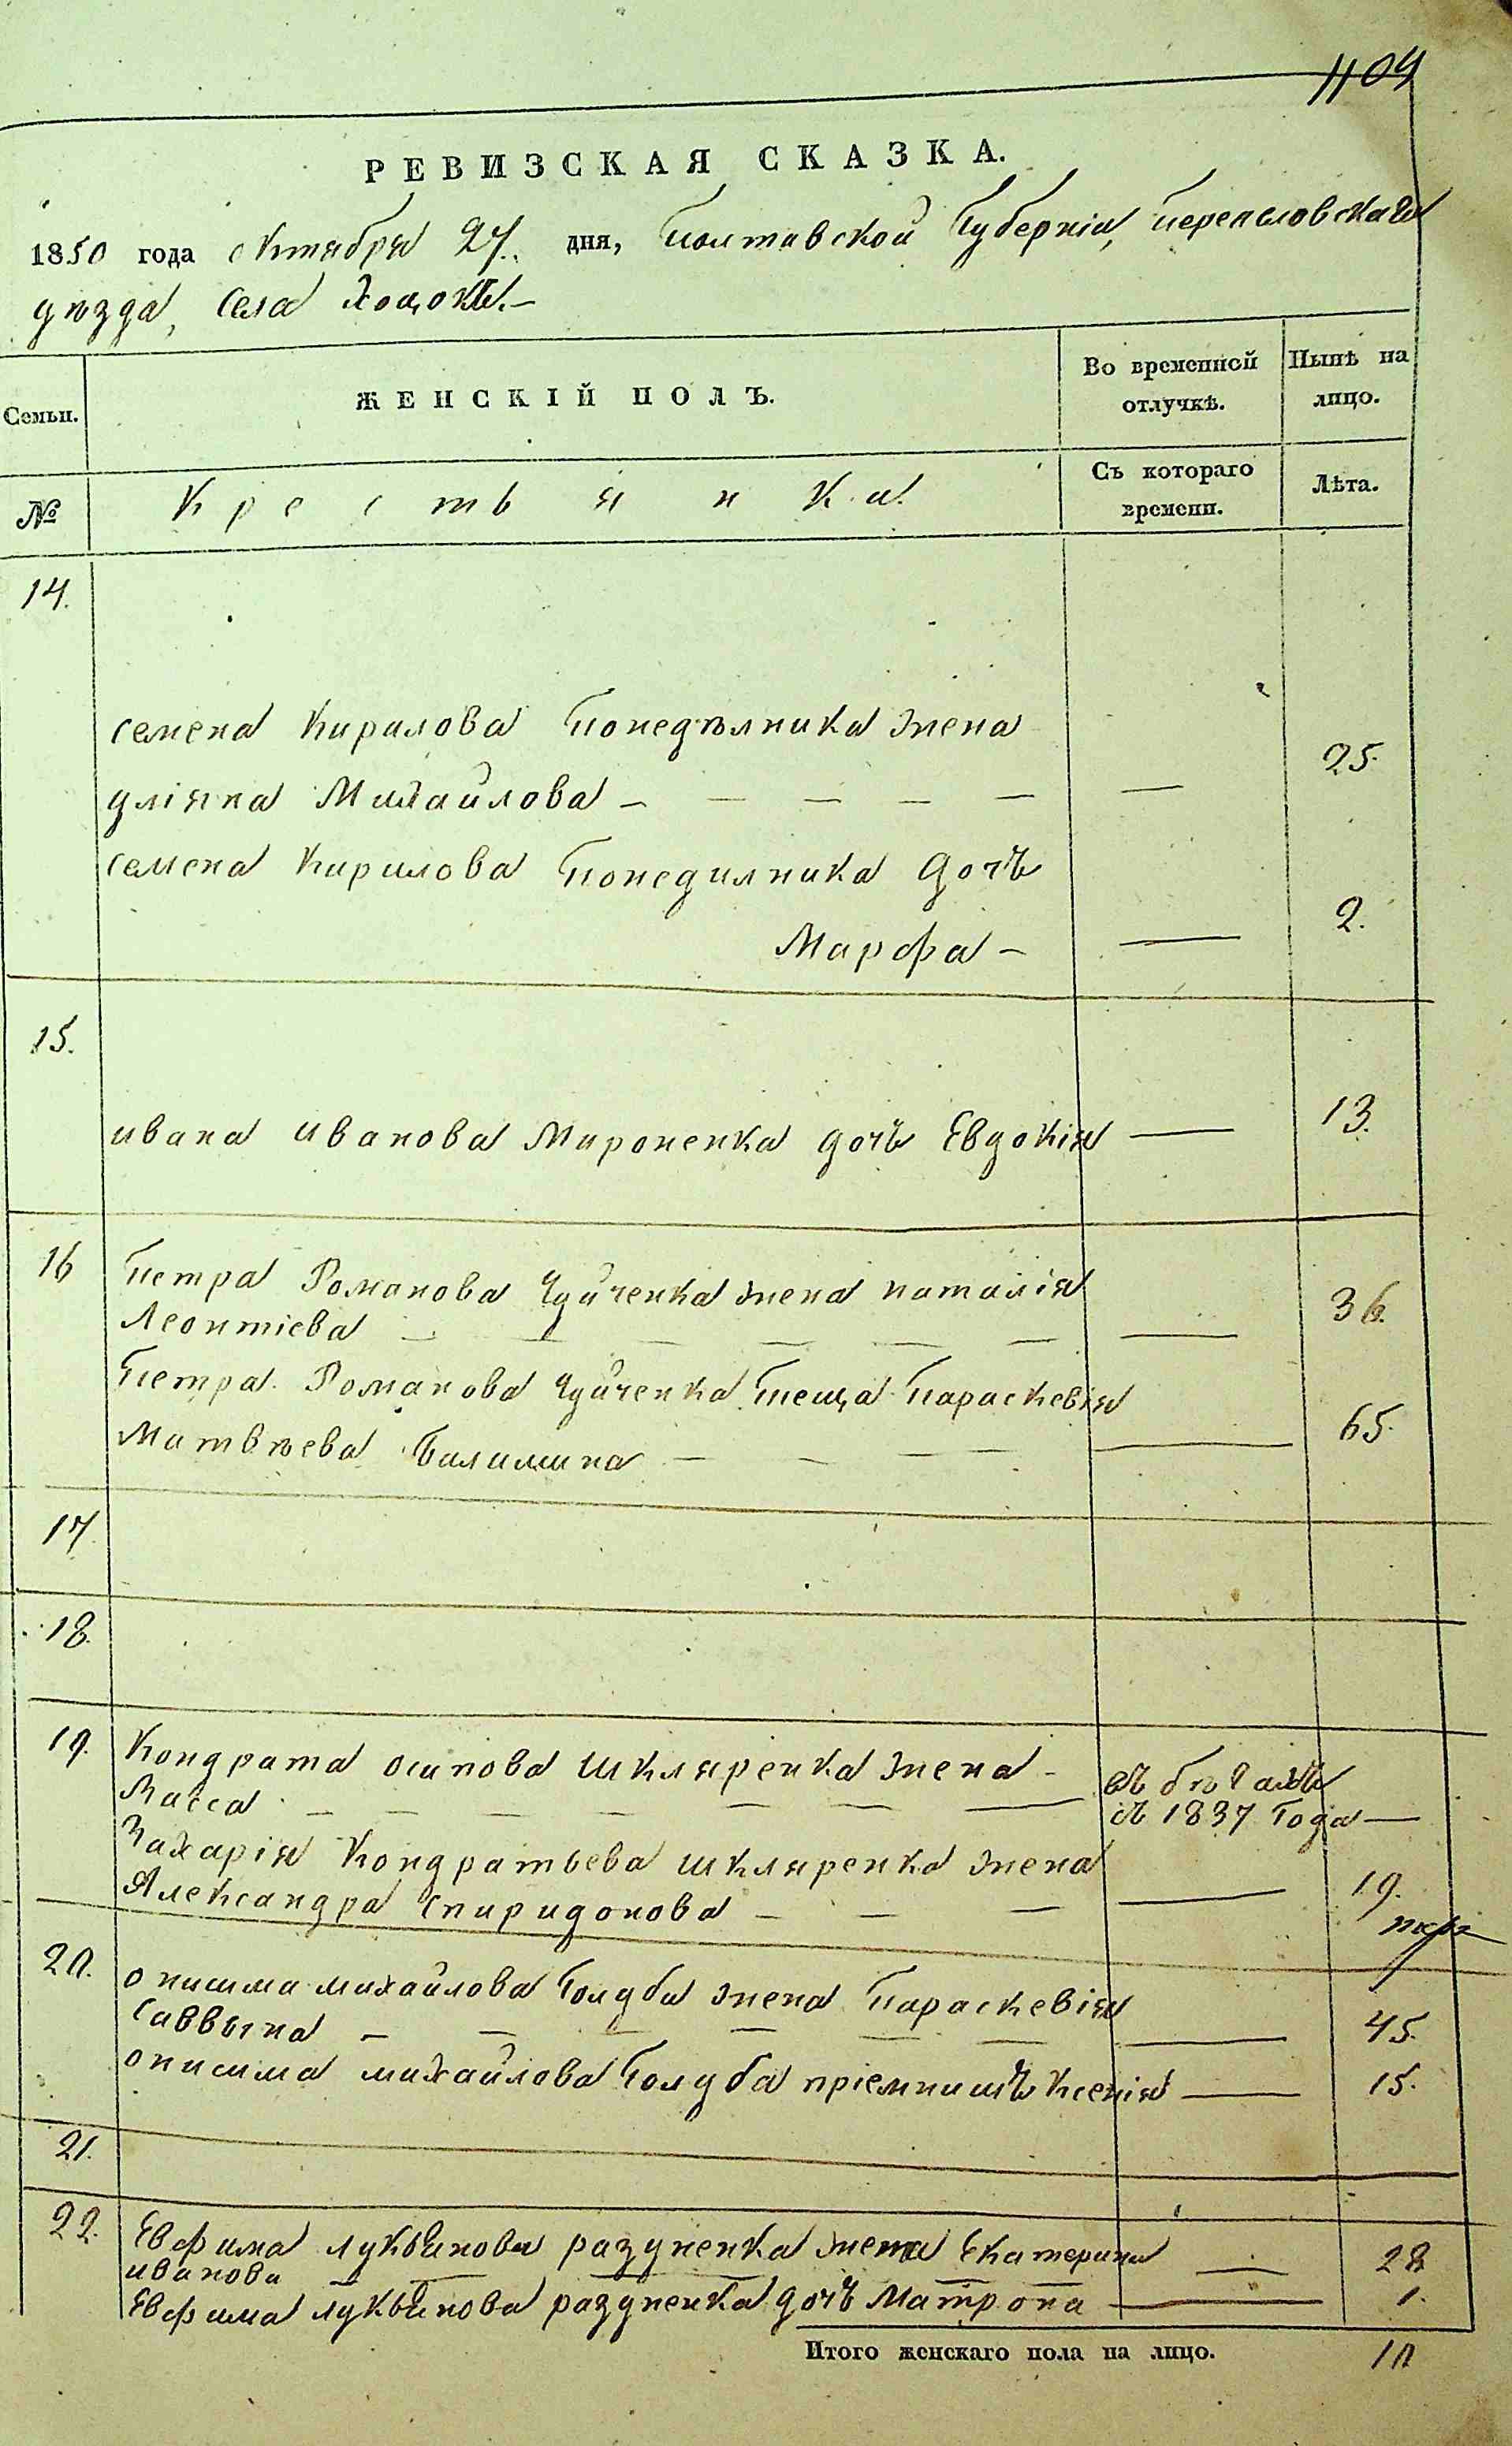 1104
РЕВИЗСКАЯ СКАЗКА.
1850 года октября 27. дня, Полтавской Губерніи, Переяловскаго
уѣзда, села Хоцокъ.-
Семьи.
ЖЕНСКІЙ ПОЛЪ.
Во временной отлучкѣ.
Нынѣ на лицо.
№
Крестьянки.
Съ котораго времени.
Лѣта.
14.
семена Кирилова Понедѣлника жена
уліяна Михайлова - — — — — — 25.
семена Кирилова Понедилника дочь
Марфа - — 2.
15.
ивана иванова Мироненка дочь Евдокія — 13.
16 Петра Романова Чуйченка жена наталія
Леонтіева — — — — — — — 36.
Петра Романова Чуйченка теща Параскевія
Матвѣева — — — — — 65.
17.
18.
19. Кондрата осипова шкляренка жена - въ бѣгахъ
Васса — — — — — — — съ 1837 года —
Захарія Кондратьева шкляренка жена
Александра спиридонова — — — — 19.
20. онисима михайлова Голуба жена Параскевія
саввына — — — — — — — 45.
онисима михайлова Голуба пріемнишъ Ксенія — 15.
21.
22. Евфима лукьянова разуненка жена Екатерина
иванова — — — — — 28
Евфима лукьянова разуненка дочь Матрона — 1.
Итого женскаго пола на лицо. 10